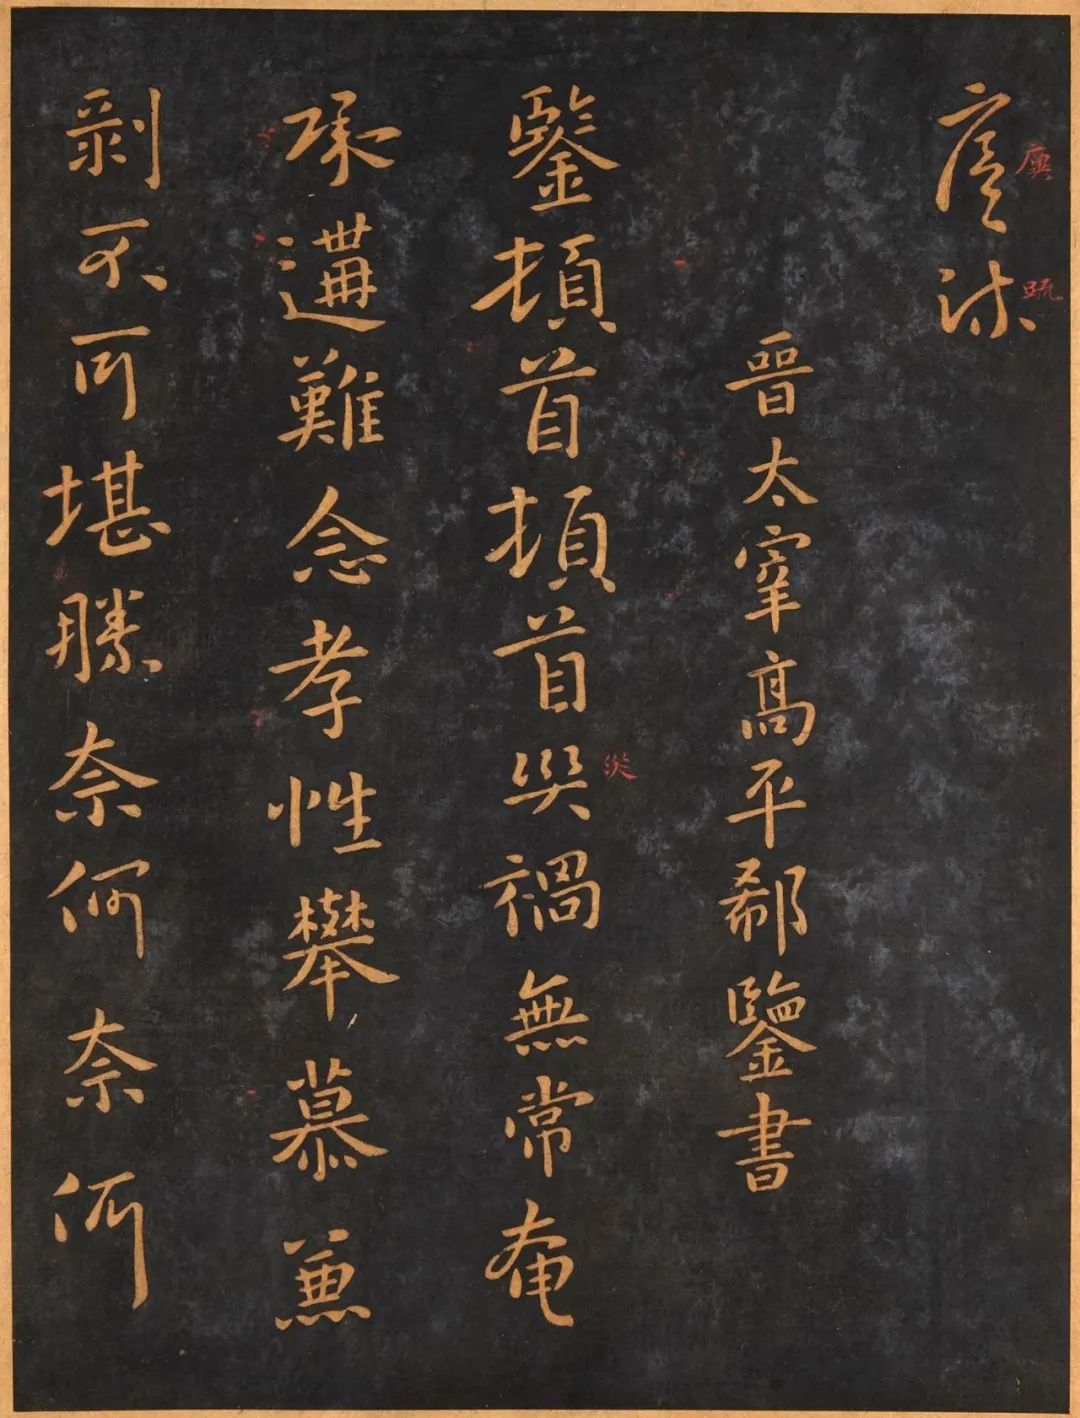 廙
疏
廙疏
晉太宰高平郗鑒書
災
鑒頓首頓首災禍無常奄
承遘難念孝性攀慕兼
剥不可堪勝奈何奈何